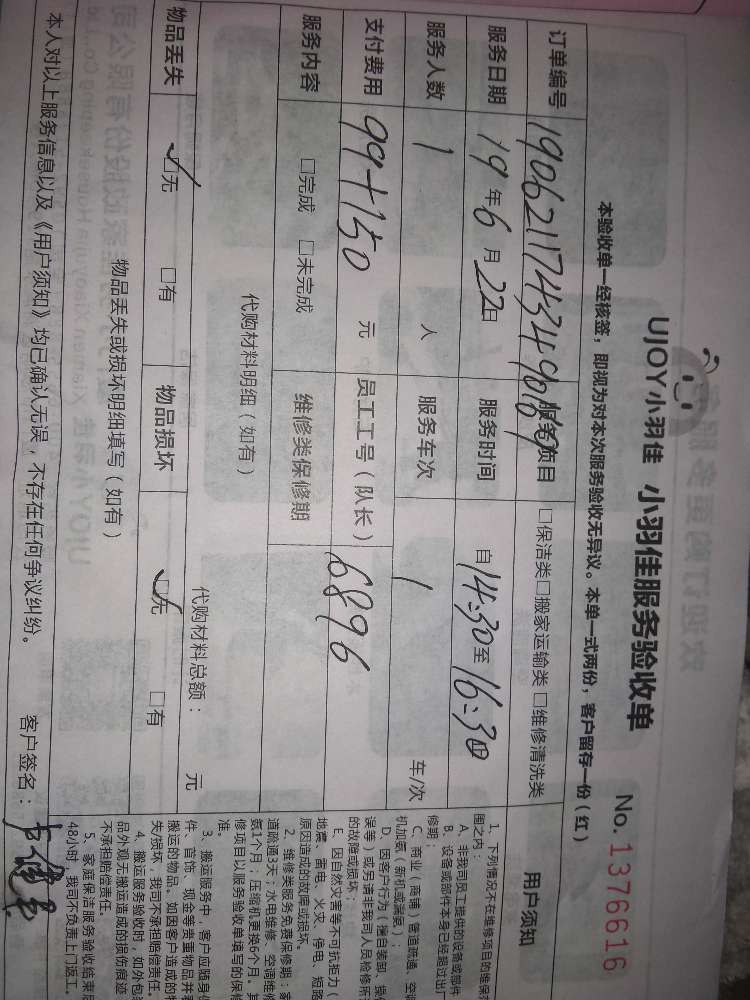 UJOY小羽佳 小羽佳服务验收单 No. 1376616
本验收单一经核签，即视为对本次服务验收无异议。本单一式两份，客户留存一份（红）
订单编号 服务项目 □保洁类□搬家运输类□维修清洗类
服务日期 19年6月22日 服务时间 自14:30至16:30
服务人数 1 人 服务车次 1 车/次
支付费用 99+150 元 员工工号（队长） 6896
服务内容 □完成 □未完成 维修类保修期
代购材料明细（如有）
代购材料总额： 元
物品丢失 ☑无 □有 物品损坏 ☑无 □有
物品丢失或损坏明细填写（如有）
本人对以上服务信息以及《用户须知》均已确认无误，不存在任何争议纠纷。 客户签名：
用户须知
1、下列情况不在维修项目的维保范
围之内：
A、非我司员工提供的设备或部件
B、设备或部件本身已经超过出厂
修期；
C、商业（商铺）管道疏通、空调
机加氨（新机或漏氨）；
D、因客户行为（擅自装卸、操作
误等）或另请非我司人员检修所
的故障或损坏；
E、因自然灾害等不可抗拒力（
地震、雷电、火灾、停电、短路
原因造成的故障或损坏。
2、维修类服务免费保修期：家
道疏通3天；水电维修、空调维修
氨1个月；压缩机更换6个月。其
修项目以服务验收单填写的保修
准。
3、搬运服务中，客户应随身保
件、首饰、现金等贵重物品并看
搬运的物品。如因客户造成的物
失/损坏，我司不承担赔偿责任。
4、搬运服务验收时，如外包装
品外观无搬运造成的损伤痕迹
不承担赔偿责任。
5、家庭保洁服务验收结束后
48小时，我司不负责上门返工。